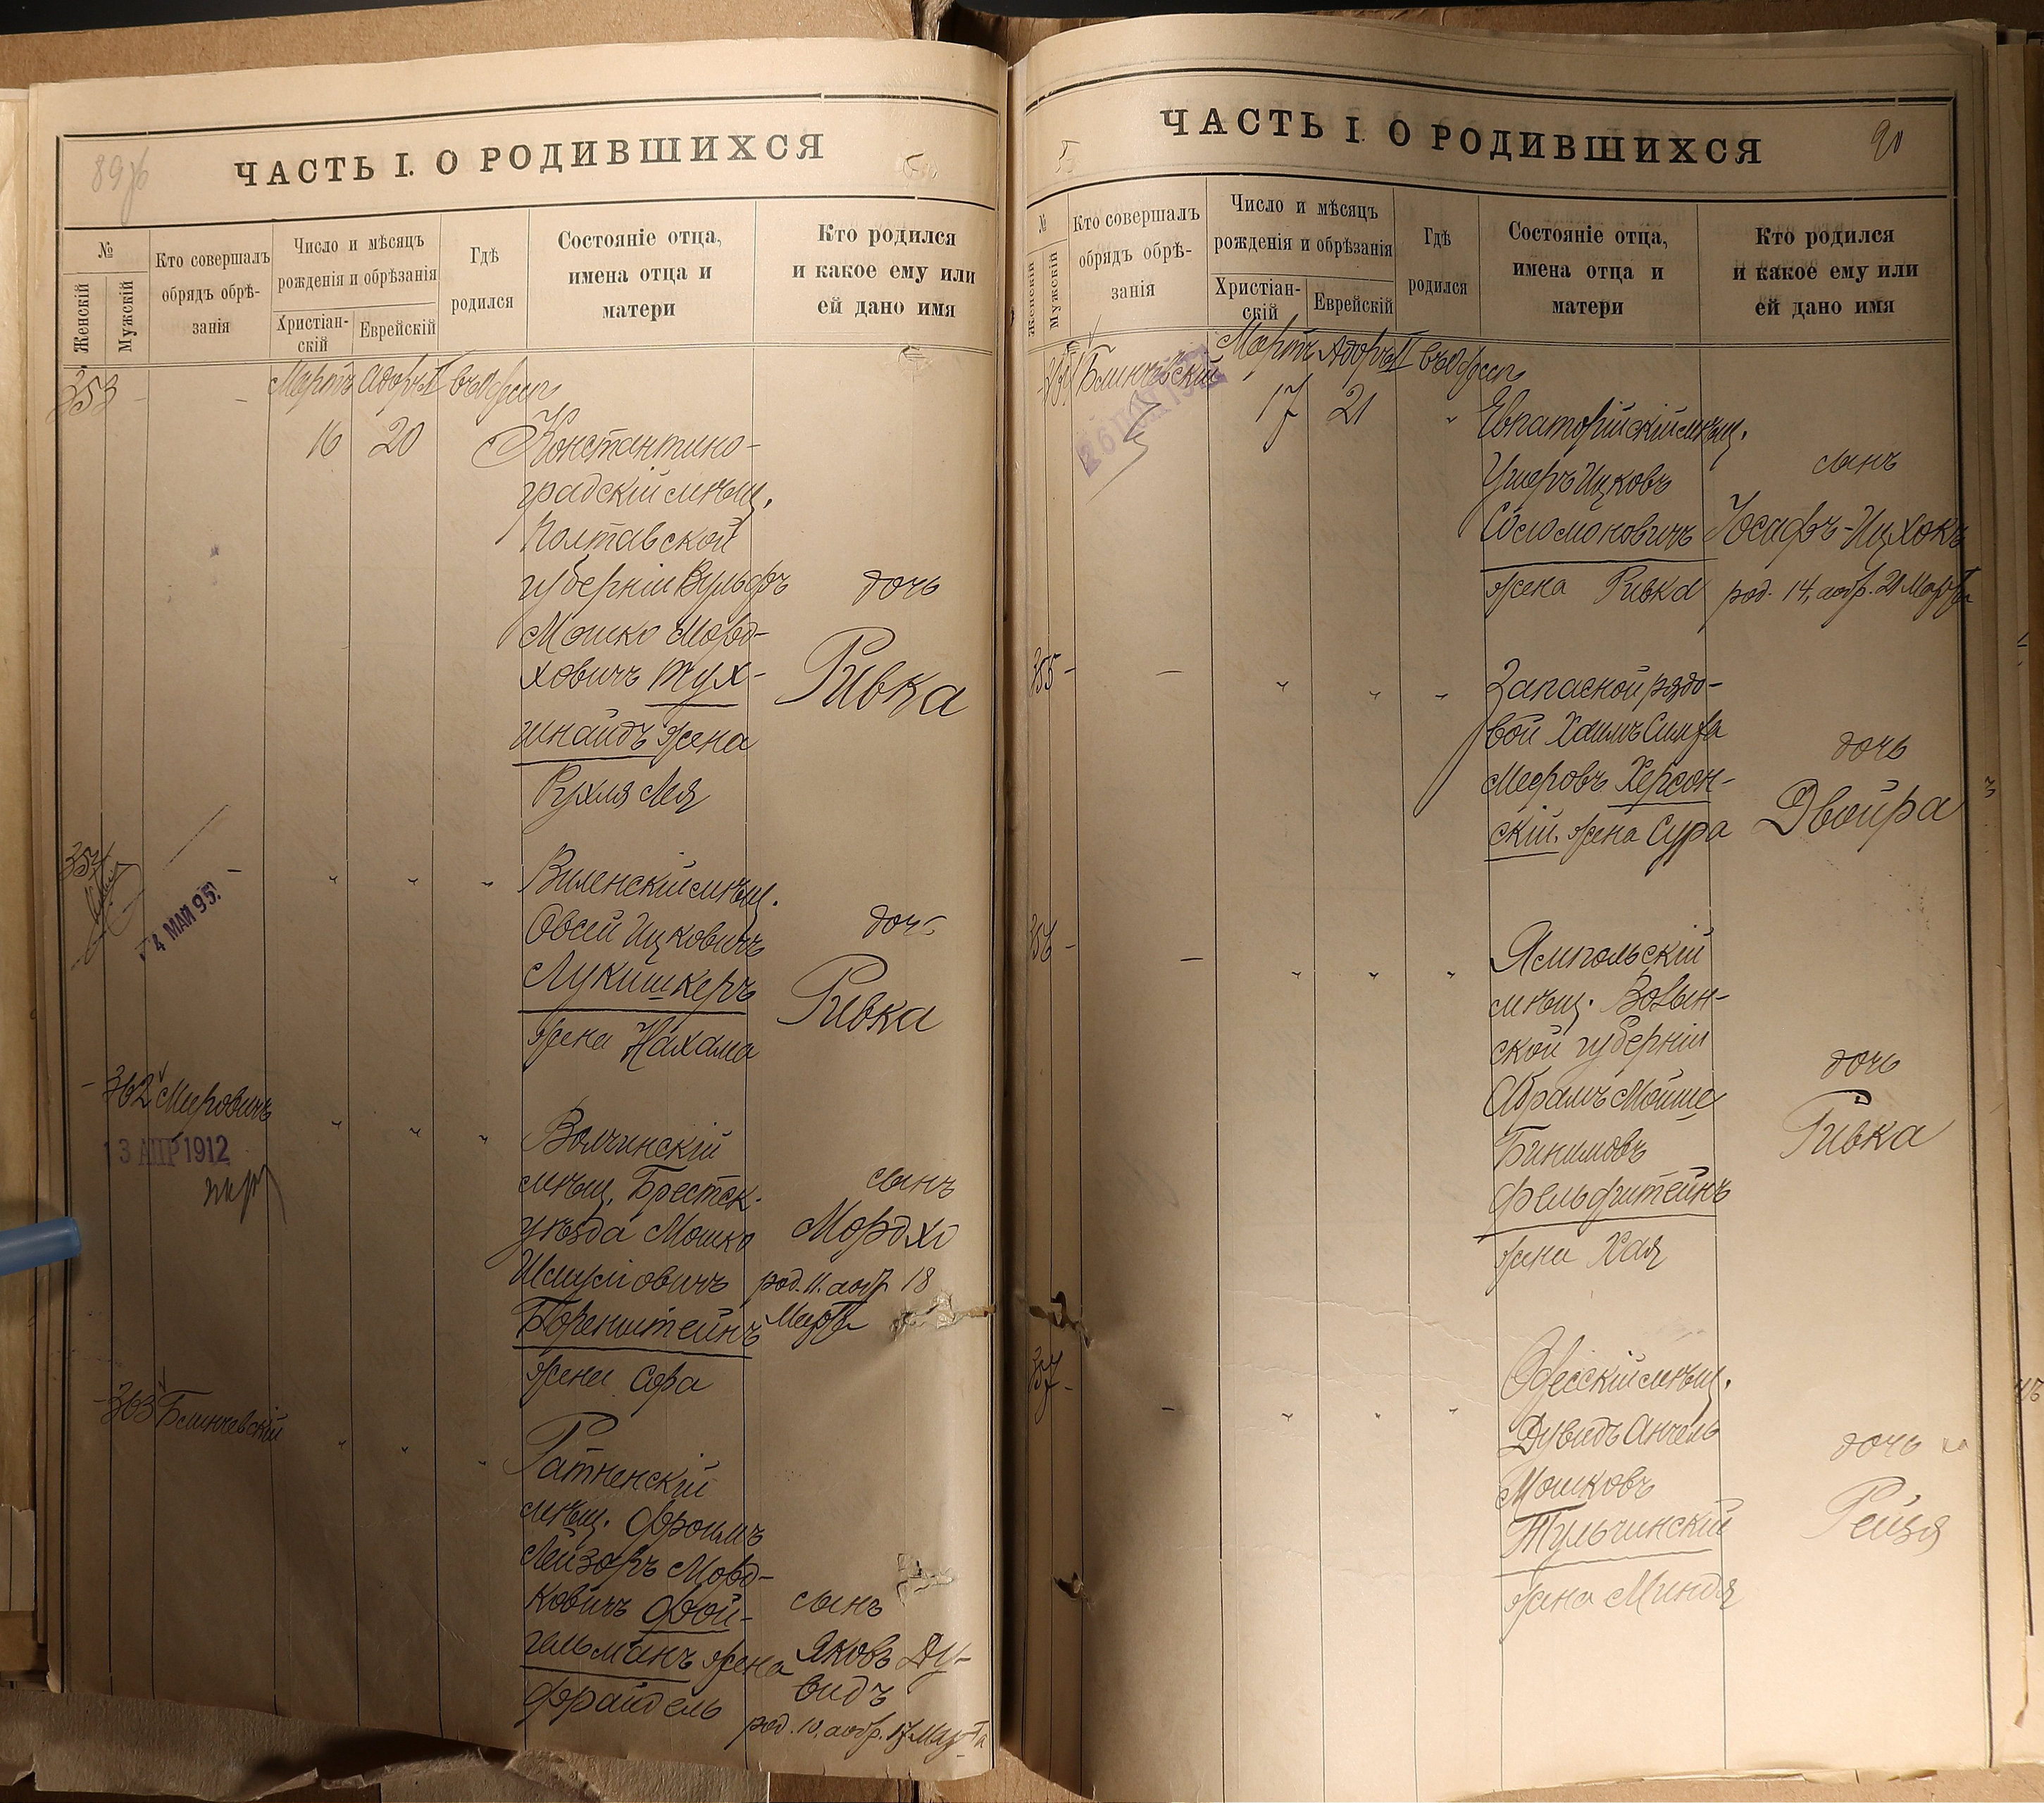 ЧАСТЬ I. О РОДИВШИХСЯ
№
Женскій
Мужскій
Кто совершалъ
обрядъ обрѣ-
занія
Число и мѣсяцъ
рожденія и обрѣзанія
Христіан-
скій
Еврейскій
Гдѣ
родился
Состояніе отца,
имена отца и
матери
Кто родился
и какое ему или
ей дано имя
353 - - Мартъ Адаръ II въ Одессѣ
16 20 Константино-
градскій мѣщ.
Полтавской
губерніи Вульфъ
Мошко Морд-
ховичъ Тух-
шнайдъ жена
Рухля Лея
дочь
Ривка
354 - " " "
4 МАЙ 95
Виленскій мѣщ.
Овсей Ицковичъ
Лукишкеръ
жена Нахама
дочь
Ривка
- 362 Мировичъ " " "
13 АПР 1912
Волчинскій
мѣщ. Брестск.
уѣзда Мошко
Шмулiовичъ
Боренштейнъ
жена Сора
сынъ
Мордхо
род. 11. аобр 18
Марта
- 363 Блинчевскій " " "
Ратненскій
мѣщ. Фроимъ
Лейзоръ Морд-
ковичъ Фой-
гельманъ жена
Фрайдель
сынъ
Яковъ Ду-
видъ
род. 10, аобр. 17 Марта
ЧАСТЬ I. О РОДИВШИХСЯ
90
№
Женскій
Мужскій
Кто совершалъ
обрядъ обрѣ-
занія
Число и мѣсяцъ
рожденія и обрѣзанія
Христіан-
скій
Еврейскій
Гдѣ
родился
Состояніе отца,
имена отца и
матери
Кто родился
и какое ему или
ей дано имя
Блинчевскій Мартъ Адаръ II въ Одессѣ
17 21 "
Евпаторійскій мѣщ.
Ушеръ Ицковъ
Соломоновичъ
жена Ривка
сынъ
Іосифъ-Ицхокъ
род. 14, аобр. 21 Марта
355 - - " " "
Запасной рядо-
вой Хаимъ Симха
Мееровъ Херсон-
скій, жена Сура
дочь
Двойра
356 - - " " "
Ямпольскій
мѣщ. Волын-
ской губерніи
Абрамъ Мойше
Бинимовъ
Фельдштейнъ
жена Хая
дочь
Ривка
357 - - " " "
Одесскій мѣщ.
Дувидъ Анчель
Мошковъ
Тульчинскій
жена Миндя
дочь
Рейзя